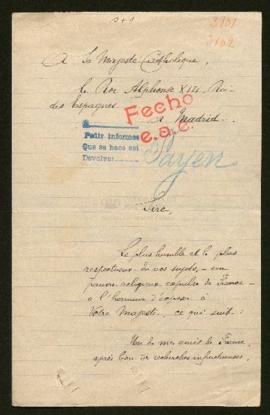 3101
3102
A Sa Majesté Catholique,
le Roi Alphonse XIII, Roi
des Espagnes
à Madrid.
Fecho
e.a.c.
Pedir informes
Que se haga así
Devolver
Payen
Sire,
Le plus humble et le plus
respectueux de vos sujets, - un
religieux de France -
a l'honneur d'exposer à
Votre Majesté, ce qui suit :
Un de mes amis de France,
après bon de recherches infructueuses,